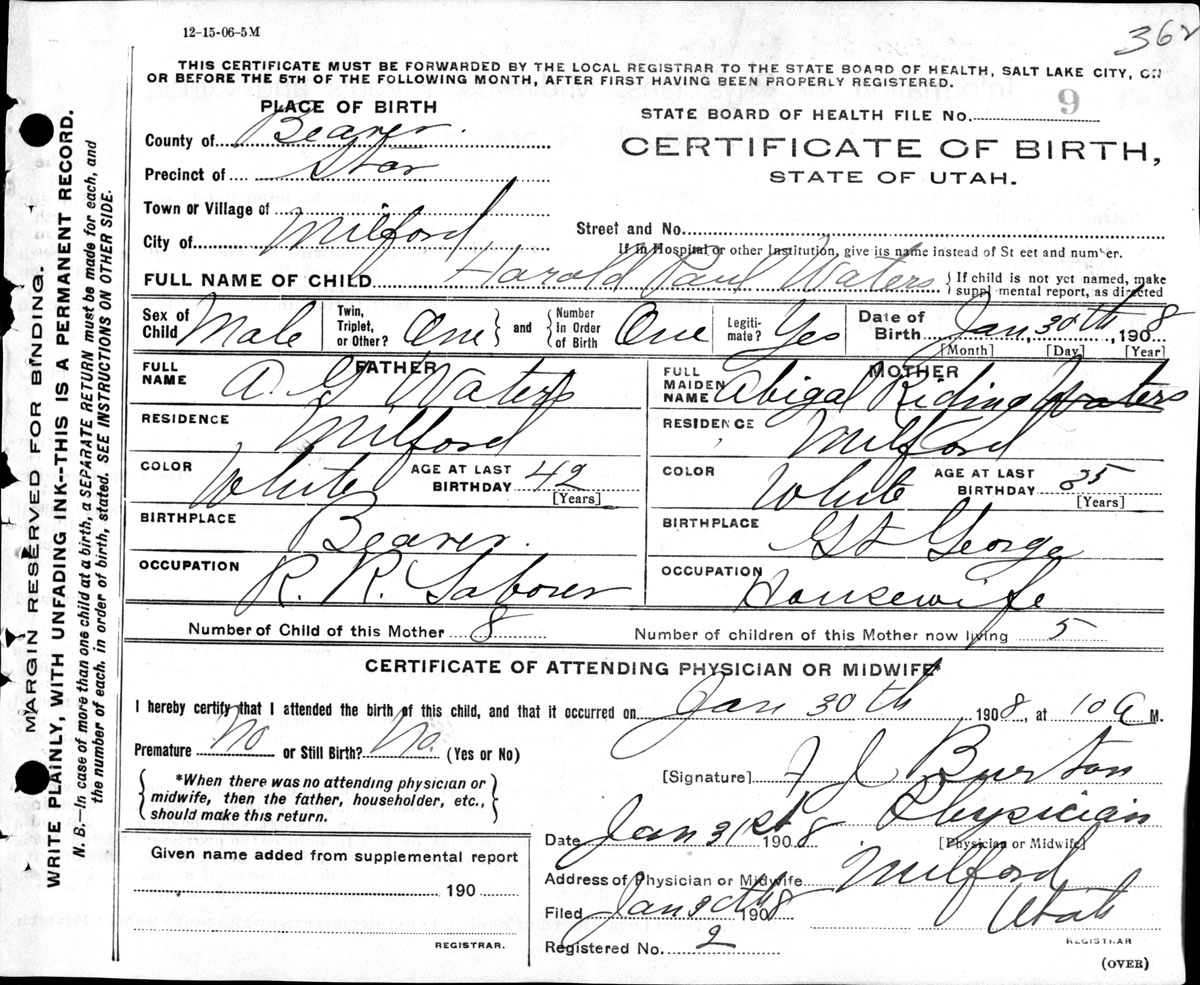 12-15-06-5M
362
THIS CERTIFICATE MUST BE FORWARDED BY THE LOCAL REGISTRAR TO THE STATE BOARD OF HEALTH, SALT LAKE CITY, ON
OR BEFORE THE 5TH OF THE FOLLOWING MONTH, AFTER FIRST HAVING BEEN PROPERLY REGISTERED.
MARGIN RESERVED FOR BINDING.
WRITE PLAINLY, WITH UNFADING INK--THIS IS A PERMANENT RECORD.
N. B.—In case of more than one child at a birth, a SEPARATE RETURN must be made for each, and
the number of each, in order of birth, stated. SEE INSTRUCTIONS ON OTHER SIDE.
PLACE OF BIRTH
County of Beaver
Precinct of Star
Town or Village of
City of Milford
STATE BOARD OF HEALTH FILE No. 9
CERTIFICATE OF BIRTH,
STATE OF UTAH.
Street and No.
If in Hospital or other Institution, give its name instead of St eet and number.
FULL NAME OF CHILD Harold Paul Waters { If child is not yet named, make
suppl mental report, as directed
Sex of Child Male
Twin, Triplet, or Other? One } and { Number in Order of Birth One
Legiti-mate? Yes
Date of Birth Jan, 30th, 1908
[Month] [Day] [Year]
FATHER
FULL NAME A. G Waters
RESIDENCE Milford
COLOR White AGE AT LAST BIRTHDAY 42
[Years]
BIRTHPLACE Beaver.
OCCUPATION R. R. Laborer
MOTHER
FULL MAIDEN NAME Abigal Riding Waters
RESIDENCE Milford
COLOR White AGE AT LAST BIRTHDAY 35
[Years]
BIRTHPLACE St George
OCCUPATION Housewife
Number of Child of this Mother 8 Number of children of this Mother now living 5
CERTIFICATE OF ATTENDING PHYSICIAN OR MIDWIFE*
I hereby certify that I attended the birth of this child, and that it occurred on Jan 30th, 1908, at 10 A M.
Premature No or Still Birth? No. (Yes or No)
{ *When there was no attending physician or
midwife, then the father, householder, etc.,
should make this return. }
[Signature] F J Burton
Physician
[Physician or Midwife]
Date Jan 31st 1908
Address of Physician or Midwife Milford
Utah
Filed 1908
Registered No. 2
REGISTRAR
(OVER)
Given name added from supplemental report
190
REGISTRAR.